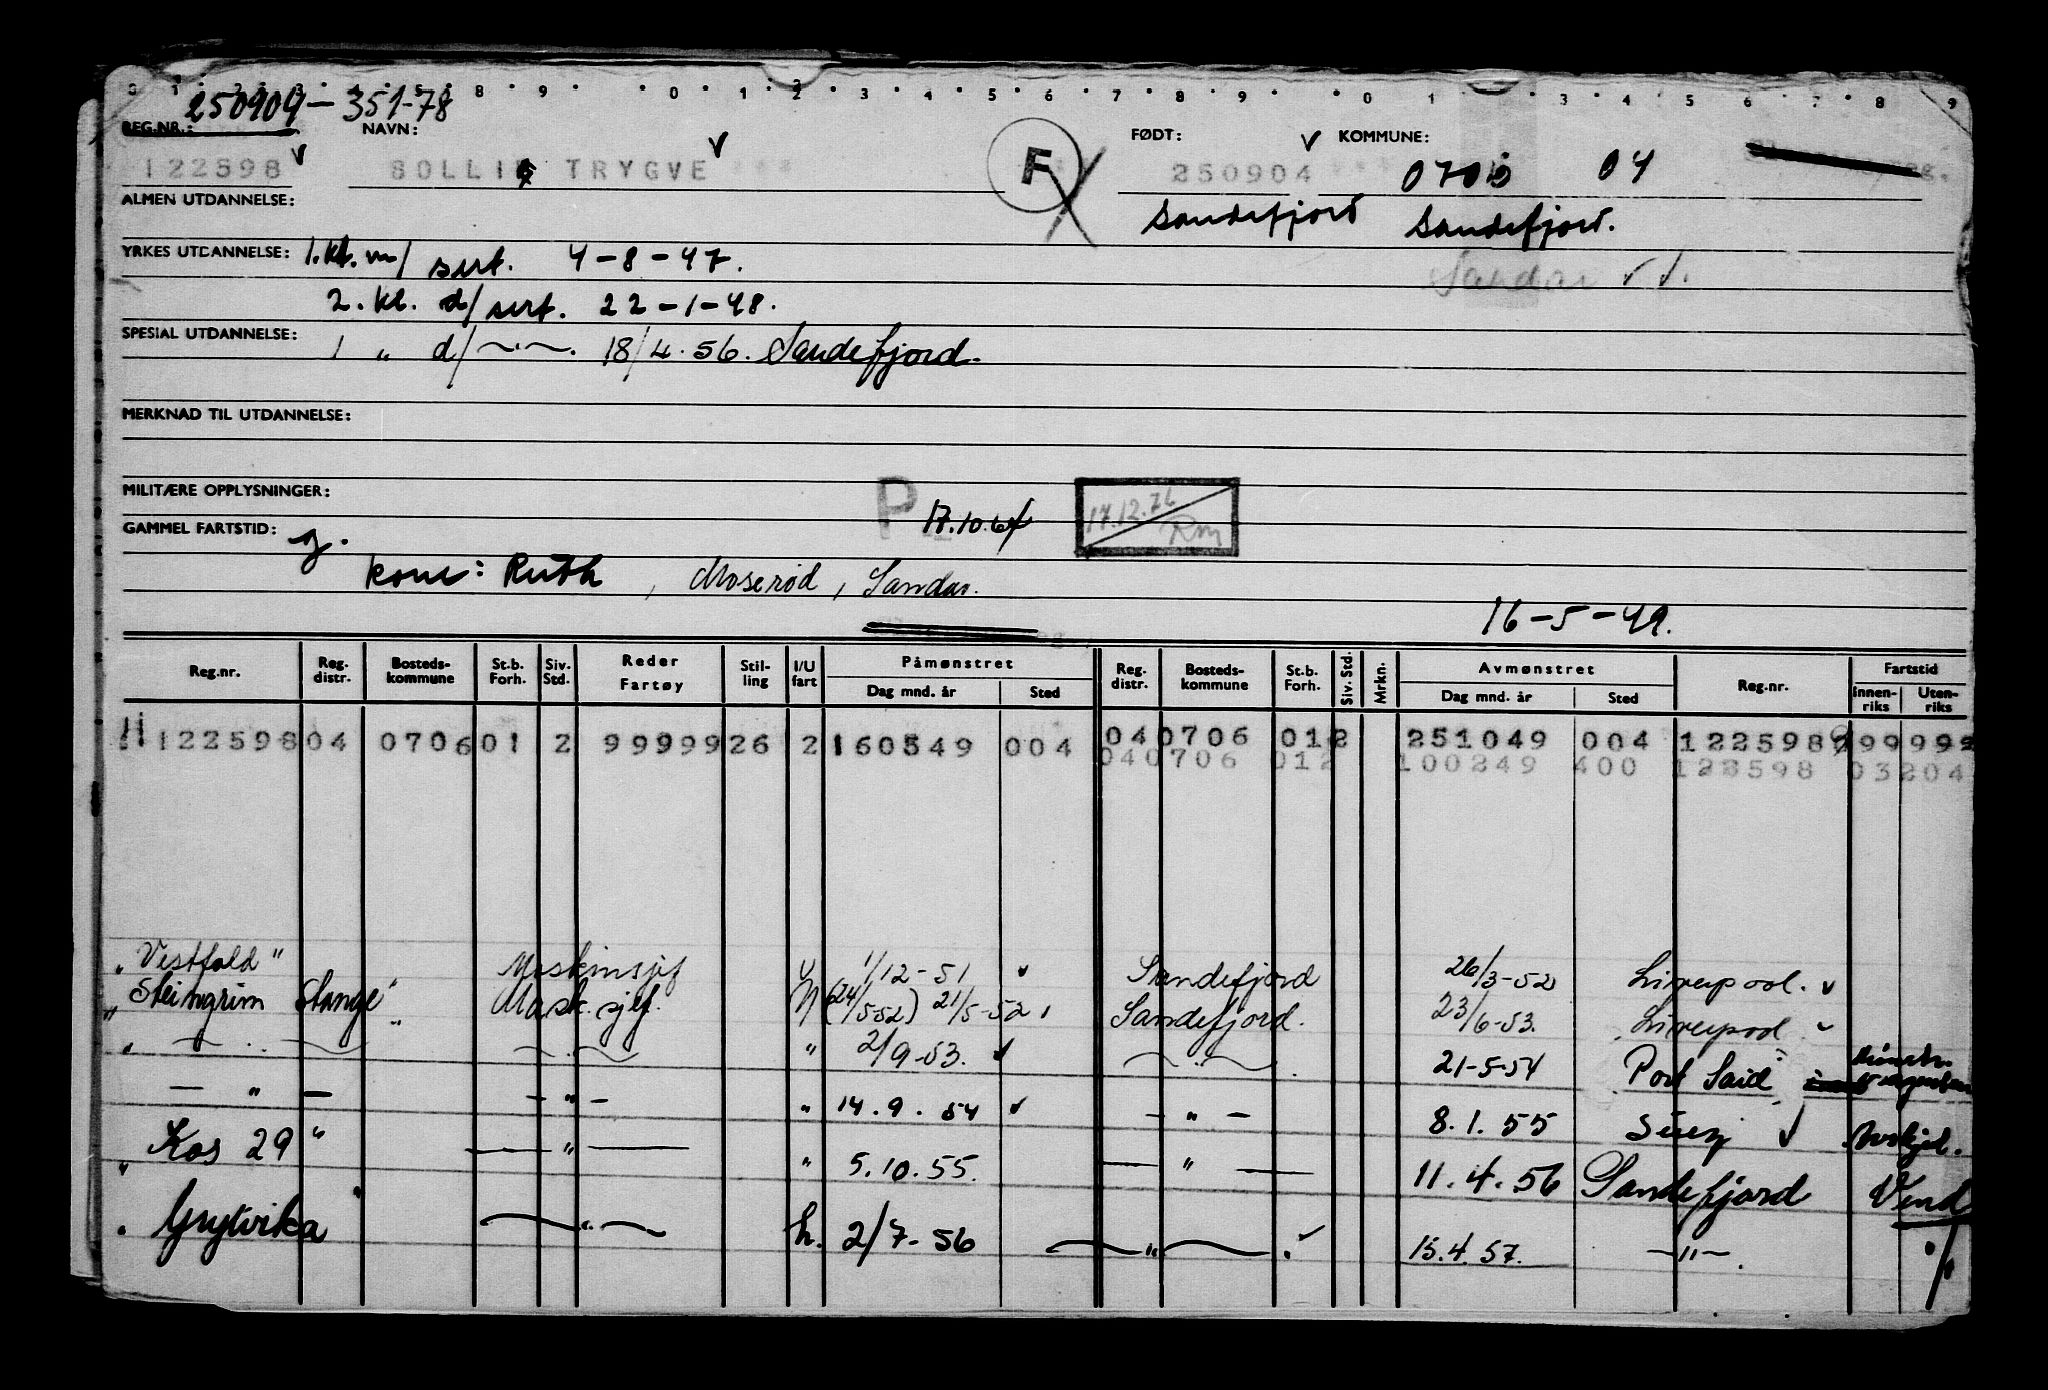 250904-351-78
REG.NR.: NAVN: FØDT: KOMMUNE:
122598 SOLLIE TRYGVE F 250904 0706 04
ALMEN UTDANNELSE: Sandefjord Sandefjord.
YRKES UTDANNELSE: 1. kl. m/ sert. 4-8-47. Sandar
2. kl. d/ sert. 22-1-48.
SPESIAL UTDANNELSE: 1 " d/ —"—. 18/4.56. Sandefjord.
MERKNAD TIL UTDANNELSE:
MILITÆRE OPPLYSNINGER: P 17.10.64 17.12.76 Rm
GAMMEL FARTSTID: g.
kone: Ruth, Moserød, Sandar.
16-5-49.
Reg.nr. Reg. distr. Bosteds-kommune St.b. Forh. Siv. Std. Reder Fartøy Stil-ling I/U fart Påmønstret Dag mnd. år Sted Reg. distr. Bosteds-kommune St.b. Forh. Siv. Std. Mrkn. Avmønstret Dag mnd. år Sted Reg.nr. Fartstid Innen-riks Uten-riks
122598 04 0706 01 2 99999 26 2 160549 004 04 0706 01 2 251049 004 122598 99 999
04 0706 01 2 100249 400 122598 03 204
"Vestfold" Maskinsjef 1/12-51 Sandefjord 26/3-52 Liverpool.
"Steingrim Stange" Mask.sjef. (24/5-52) 21/5-52 Sandefjord. 23/6-53. Liverpool
" — .. — —..— " 2/9-53. —..— 21-5-54 Port Said
— " — — " — " 14.9.54 — " — 8.1.55 Suez Avskjed.
" Kos 29 " — " — " 5.10.55. — " — 11.4.56 Sandefjord Vend
" Grytvika " — " — h. 2/7-56 — " — . 15.4.57. —"—.